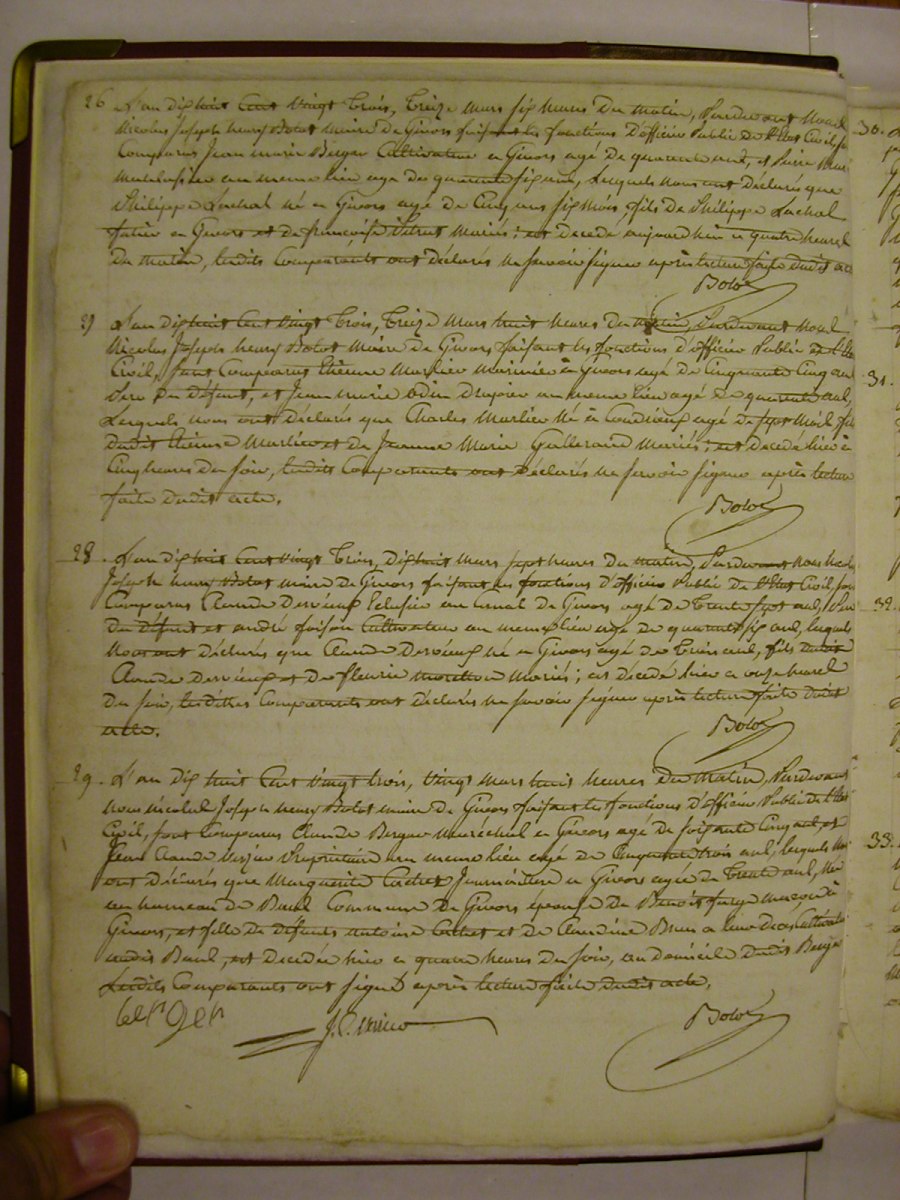 26 L'an dix huit Cent Vingt Trois, Treize Mars six heures Du Matin, Pardevant Nous
Nicolas Joseph henry Bolot maire De Givors faisant les fonctions D'officier Public De l'Etat Civil,
Comparus Jean marie Berger Cultivateur a Givors agé De quarante ans, et Pierre
au meme lieu agé De quarante six ans, Lesquels nous ont Déclarés que
Philippe Lachal né a Givors agé De Cinq ans six Mois, fils De Philippe Lachal
a Givors et De françoise Mariés; est Decedé aujourd'hui a quatre heures
Du matin, lesdits Comparants ont Déclarés ne savoir signer après lecture faite Dudit acte
Bolot
27 L'an dix huit Cent Vingt Trois, Treize Mars huit heures Du matin, Pardevant Nous
Nicolas Joseph henry Bolot Maire De Givors faisant les fonctions D'officier Public De l'Etat
Civil, sont Comparus Etienne Marlier Marinier à Givors agé De Cinquante Cinq ans
Père Du Défunt, et Jean marie odin au meme lieu agé De quarante ans,
Lesquels nous ont Déclarés que Charles Marlier Né à Condrieux agé De sept Mois fils
Dudit Etienne Marlier et De Jeanne Marie Mariés; est Decedé hier à
Cinq heures Du soir, lesdits Comparants ont Déclarés ne savoir signer après lecture
faite Dudit acte.
Bolot
28. L'an dix huit Cent Vingt Trois, Dix huit Mars sept heures Du matin, Pardevant Nous
Joseph henry Bolot maire De Givors faisant les fonctions D'officier Public De l'Etat Civil, sont
Comparus Claude Dervieux Eclusier au Canal De Givors agé De Trente sept ans, Père
Du Défunt et andré faison Cultivateur au meme lieu agé De quarante six ans, lesquels
Nous ont Déclarés que Claude Dervieux né a Givors agé De Trois ans, fils Dudit
Claude Dervieux et De fleurie Mariés; est Décédé hier a onze heures
Du soir, lesdittes Comparants ont Déclarés ne savoir signer après lecture faite Dudit
acte.
Bolot
29. L'an dix huit Cent Vingt trois, Vingt Mars huit heures Du Matin, Pardevant
nous nicolas Joseph henry Bolot maire De Givors faisant les fonctions D'officier Public De l'Etat
Civil, sont Comparus Claude Berger Maréchal a Givors agé De soixante Cinq ans, et
Jean Claude Propriétaire au meme lieu agé De Cinquante trois ans, lesquels Nous
ont Déclarés que Marguerite Journalière a Givors agée De Trente ans, Née
au hameau De Commune De Givors épouse De Benoit
Givors, et fille De Défunts antoine et De Claudine Brun a leur Décès Cultivateurs
audit, est Decedée hier a quatre heures Du soir, au domicile Dudit Berger
Lesdits Comparants ont signé après lecture faite Dudit acte.
berger
Bolot
30.
31.
32.
33.